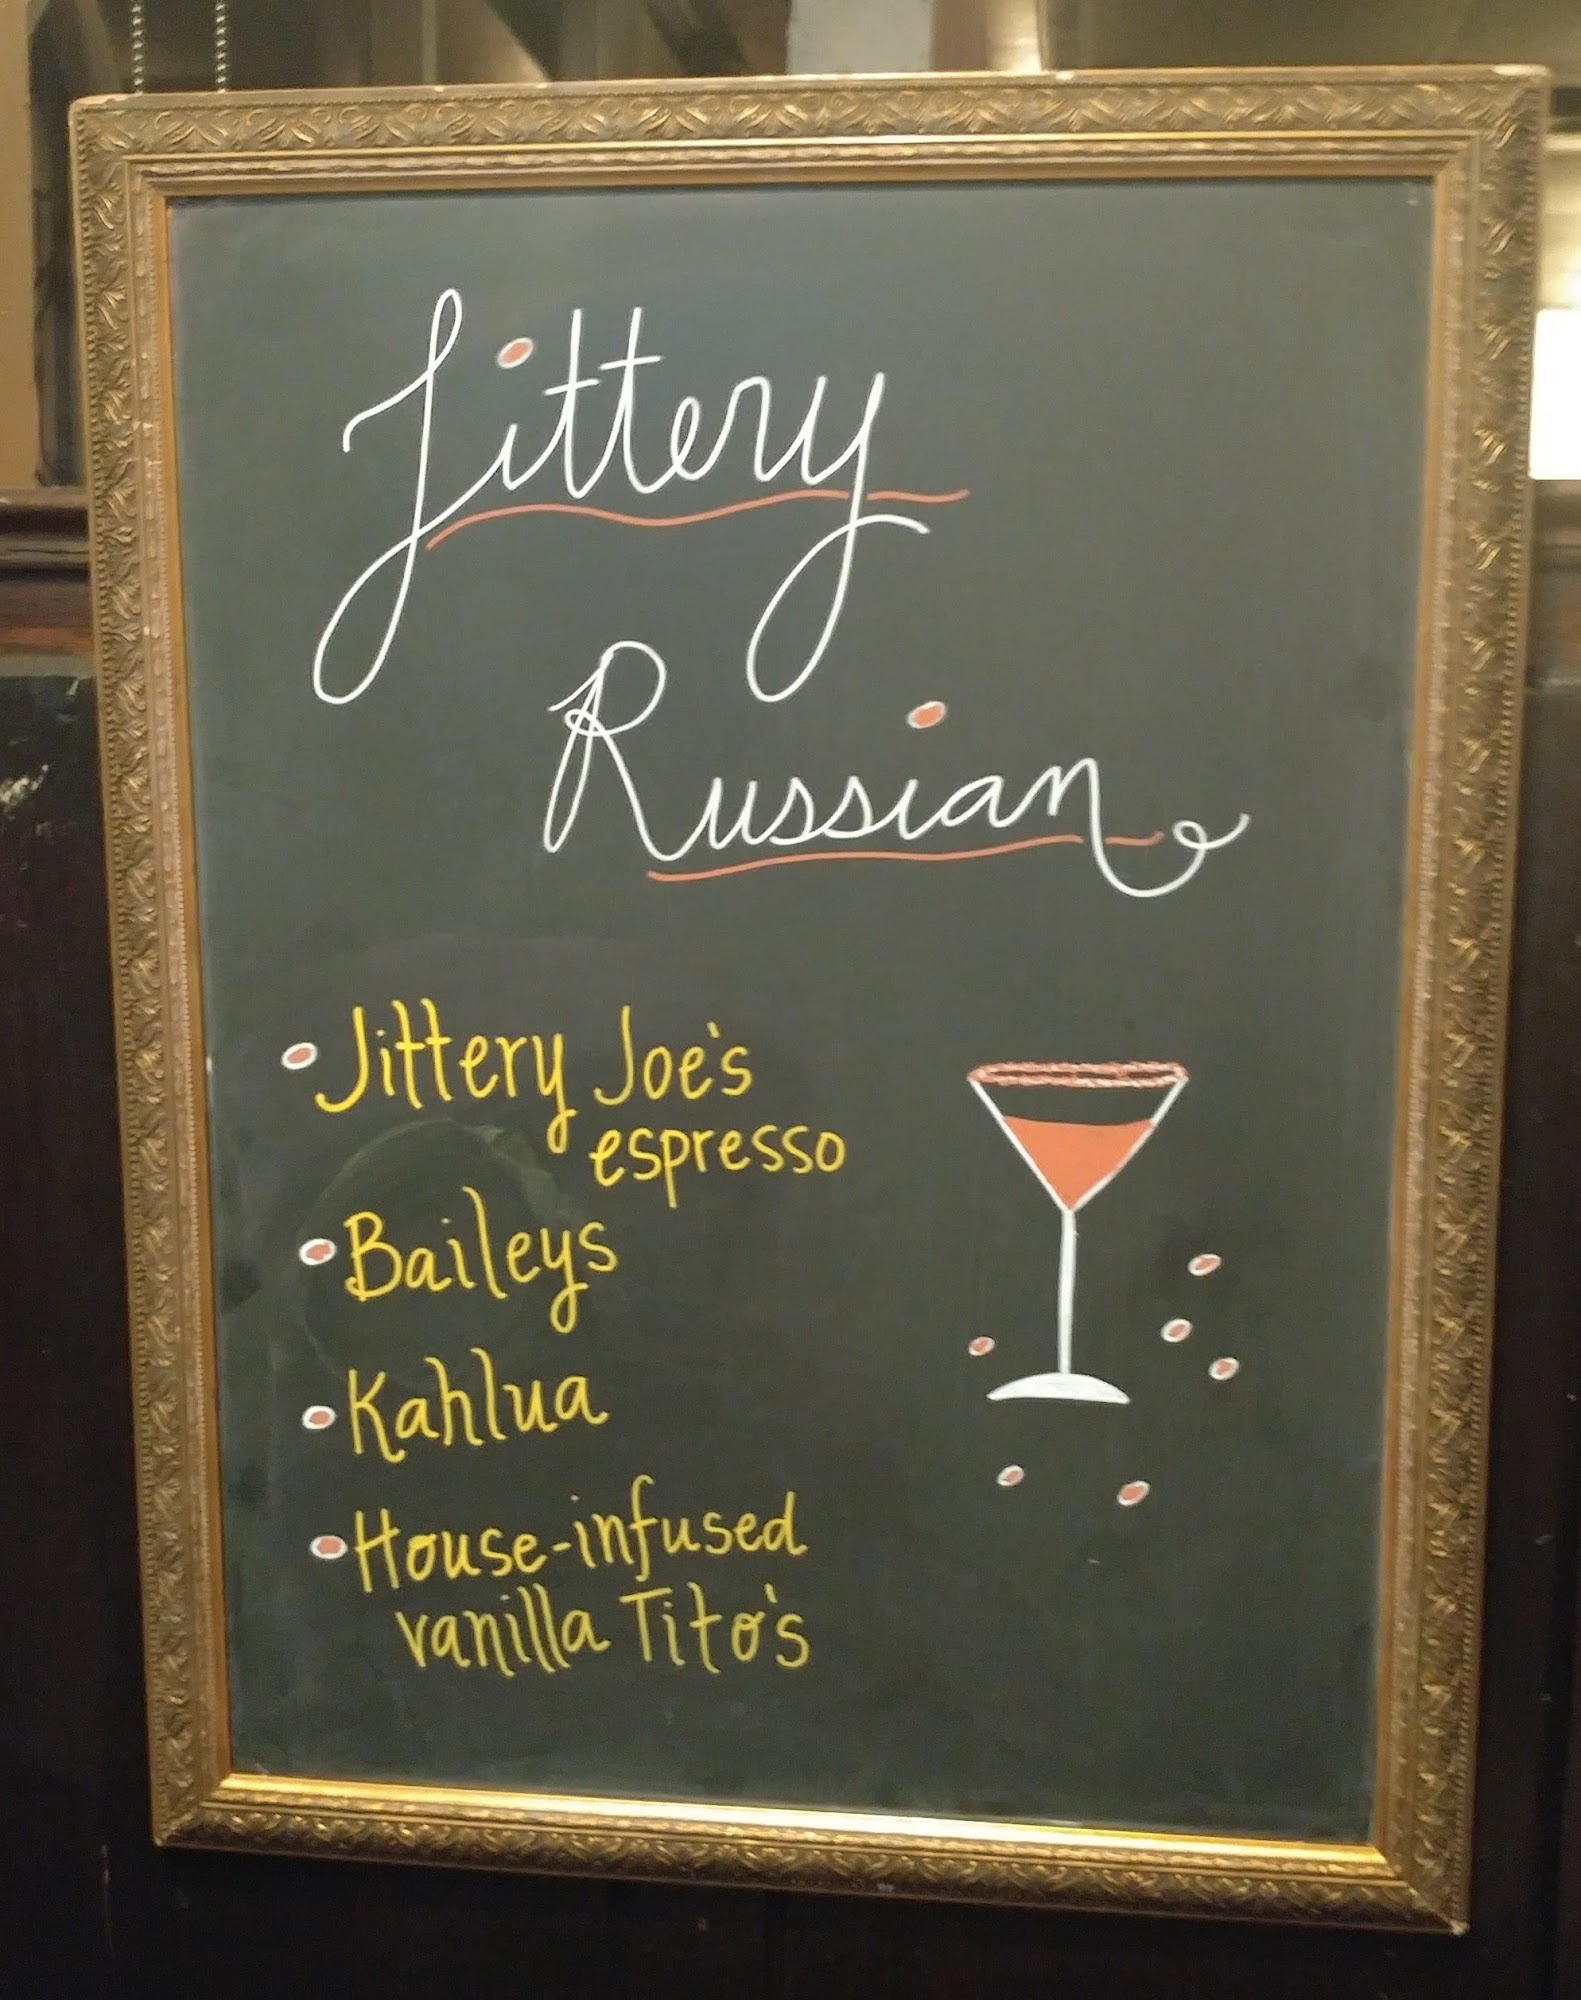 Jittery
Russian
Jittery Joe's
espresso
Baileys
Kahlua
House-infused
vanilla Tito's